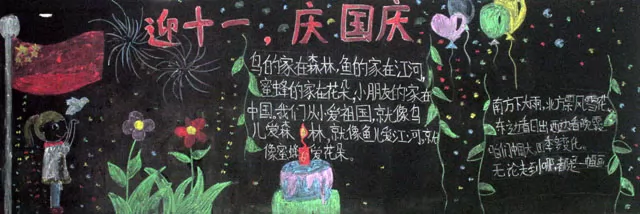 迎十一，庆国庆
鸟的家在森林，鱼的家在江河，
蜜蜂的家在花朵，小朋友的家在
中国。我们从小爱祖国，就像鸟
儿爱森林，就像鱼儿爱江河，就
像蜜蜂爱花朵。
南方下大雨，北方飘雪花
东边看日出 西边看晚霞
咱们中国大 四季
无论走到哪 都是一幅画